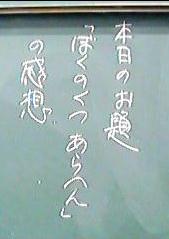 本日のお題
「ぼくのくつあらへん」
の感想